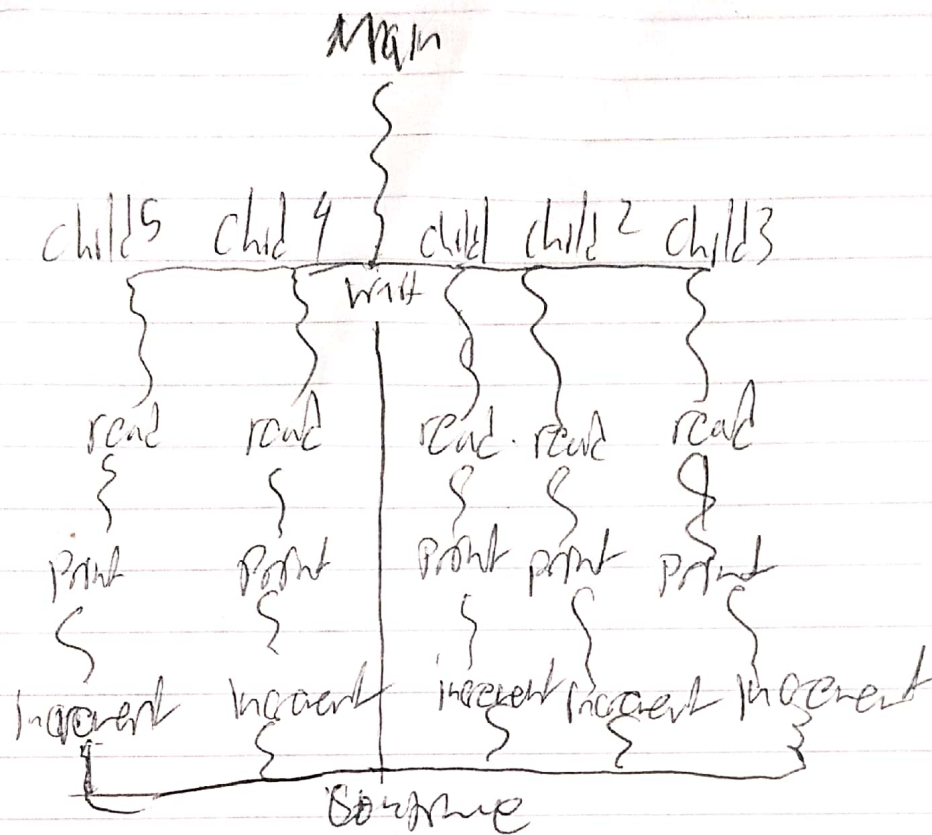 Main
Child5 Chid 4 child child 2 Child3
Wait
read read read. read read
Print Print Print print Print
Increment Increment increment Increment Increment
Continue